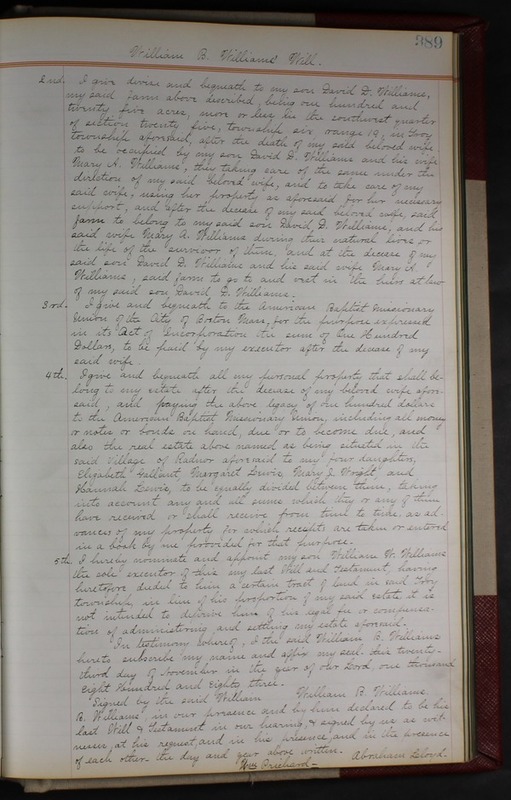 389
William B. Williams' Will.
2nd. I give devise and bequeath to my son David D. Williams,
my said farm above described, being one hundred and
twenty five acres, more or less, in the southwest quarter
of section twenty five, township six, range 19, in Troy
township aforesaid, after the death of my said beloved wife
to be occupied by my son David D. Williams and his wife
Mary A. Williams, they taking care of the same under the
direction of my said beloved wife, and to take care of my
said wife, using her property as aforesaid for her necessary
support, and after the decease of my said beloved wife, said
farm to belong to my said son David D. Williams, and his
said wife Mary A. Williams during their natural lives or
the life of the survivor of them, and at the decease of my
said son David D. Williams and his said wife Mary A.
Williams, said farm to go to and vest in the heirs at law
of my said son David D. Williams.
3rd. I give and bequeath to the American Baptist Missionary
Union of the City of Boston Mass, for the purpose expressed
in its Act of Incorporation the sum of One Hundred
Dollars, to be paid by my executor after the decease of my
said wife.
4th. I give and bequeath all my personal property that shall be-
long to my estate after the decease of my beloved wife afore-
said, and paying the above legacy of one hundred dollars
to the American Baptist Missionary Union, including all money
or notes or bonds on hand, due or to become due, and
also the real estate above named as being situated in the
said Village of Radnor aforesaid to my four daughters,
Elizabeth Gallant, Margaret Lewis, Mary J. Wright and
Hannah Lewis, to be equally divided between them, taking
into account any and all sums which they or any of them
have received or shall receive from time to time, as ad-
vances of my property for which receipts are taken or entered
in a book by me provided for that purpose.
5th. I hereby nominate and appoint my son William W. Williams
the sole executor of this my last Will and Testament, having
heretofore deeded to him a certain tract of land in said Troy
township, in lieu of his proportion of my said estate, it is
not intended to deprive him of his legal fee or compensa-
tion of administering and settling my estate aforesaid.
In testimony whereof, I the said William B. Williams
hereto subscribe my name and affix my seal this twenty-
third day of November in the year of our Lord, one thousand
Eight Hundred and Eighty three.
Signed by the said William William B. Williams.
B. Williams, in our presence and by him declared to be his
last Will & Testament in our hearing, & signed by us as wit-
nesses, at his request, and in his presence, and in the presence
of each other the day and year above written. Abraham Lloyd.
Wm Prichard